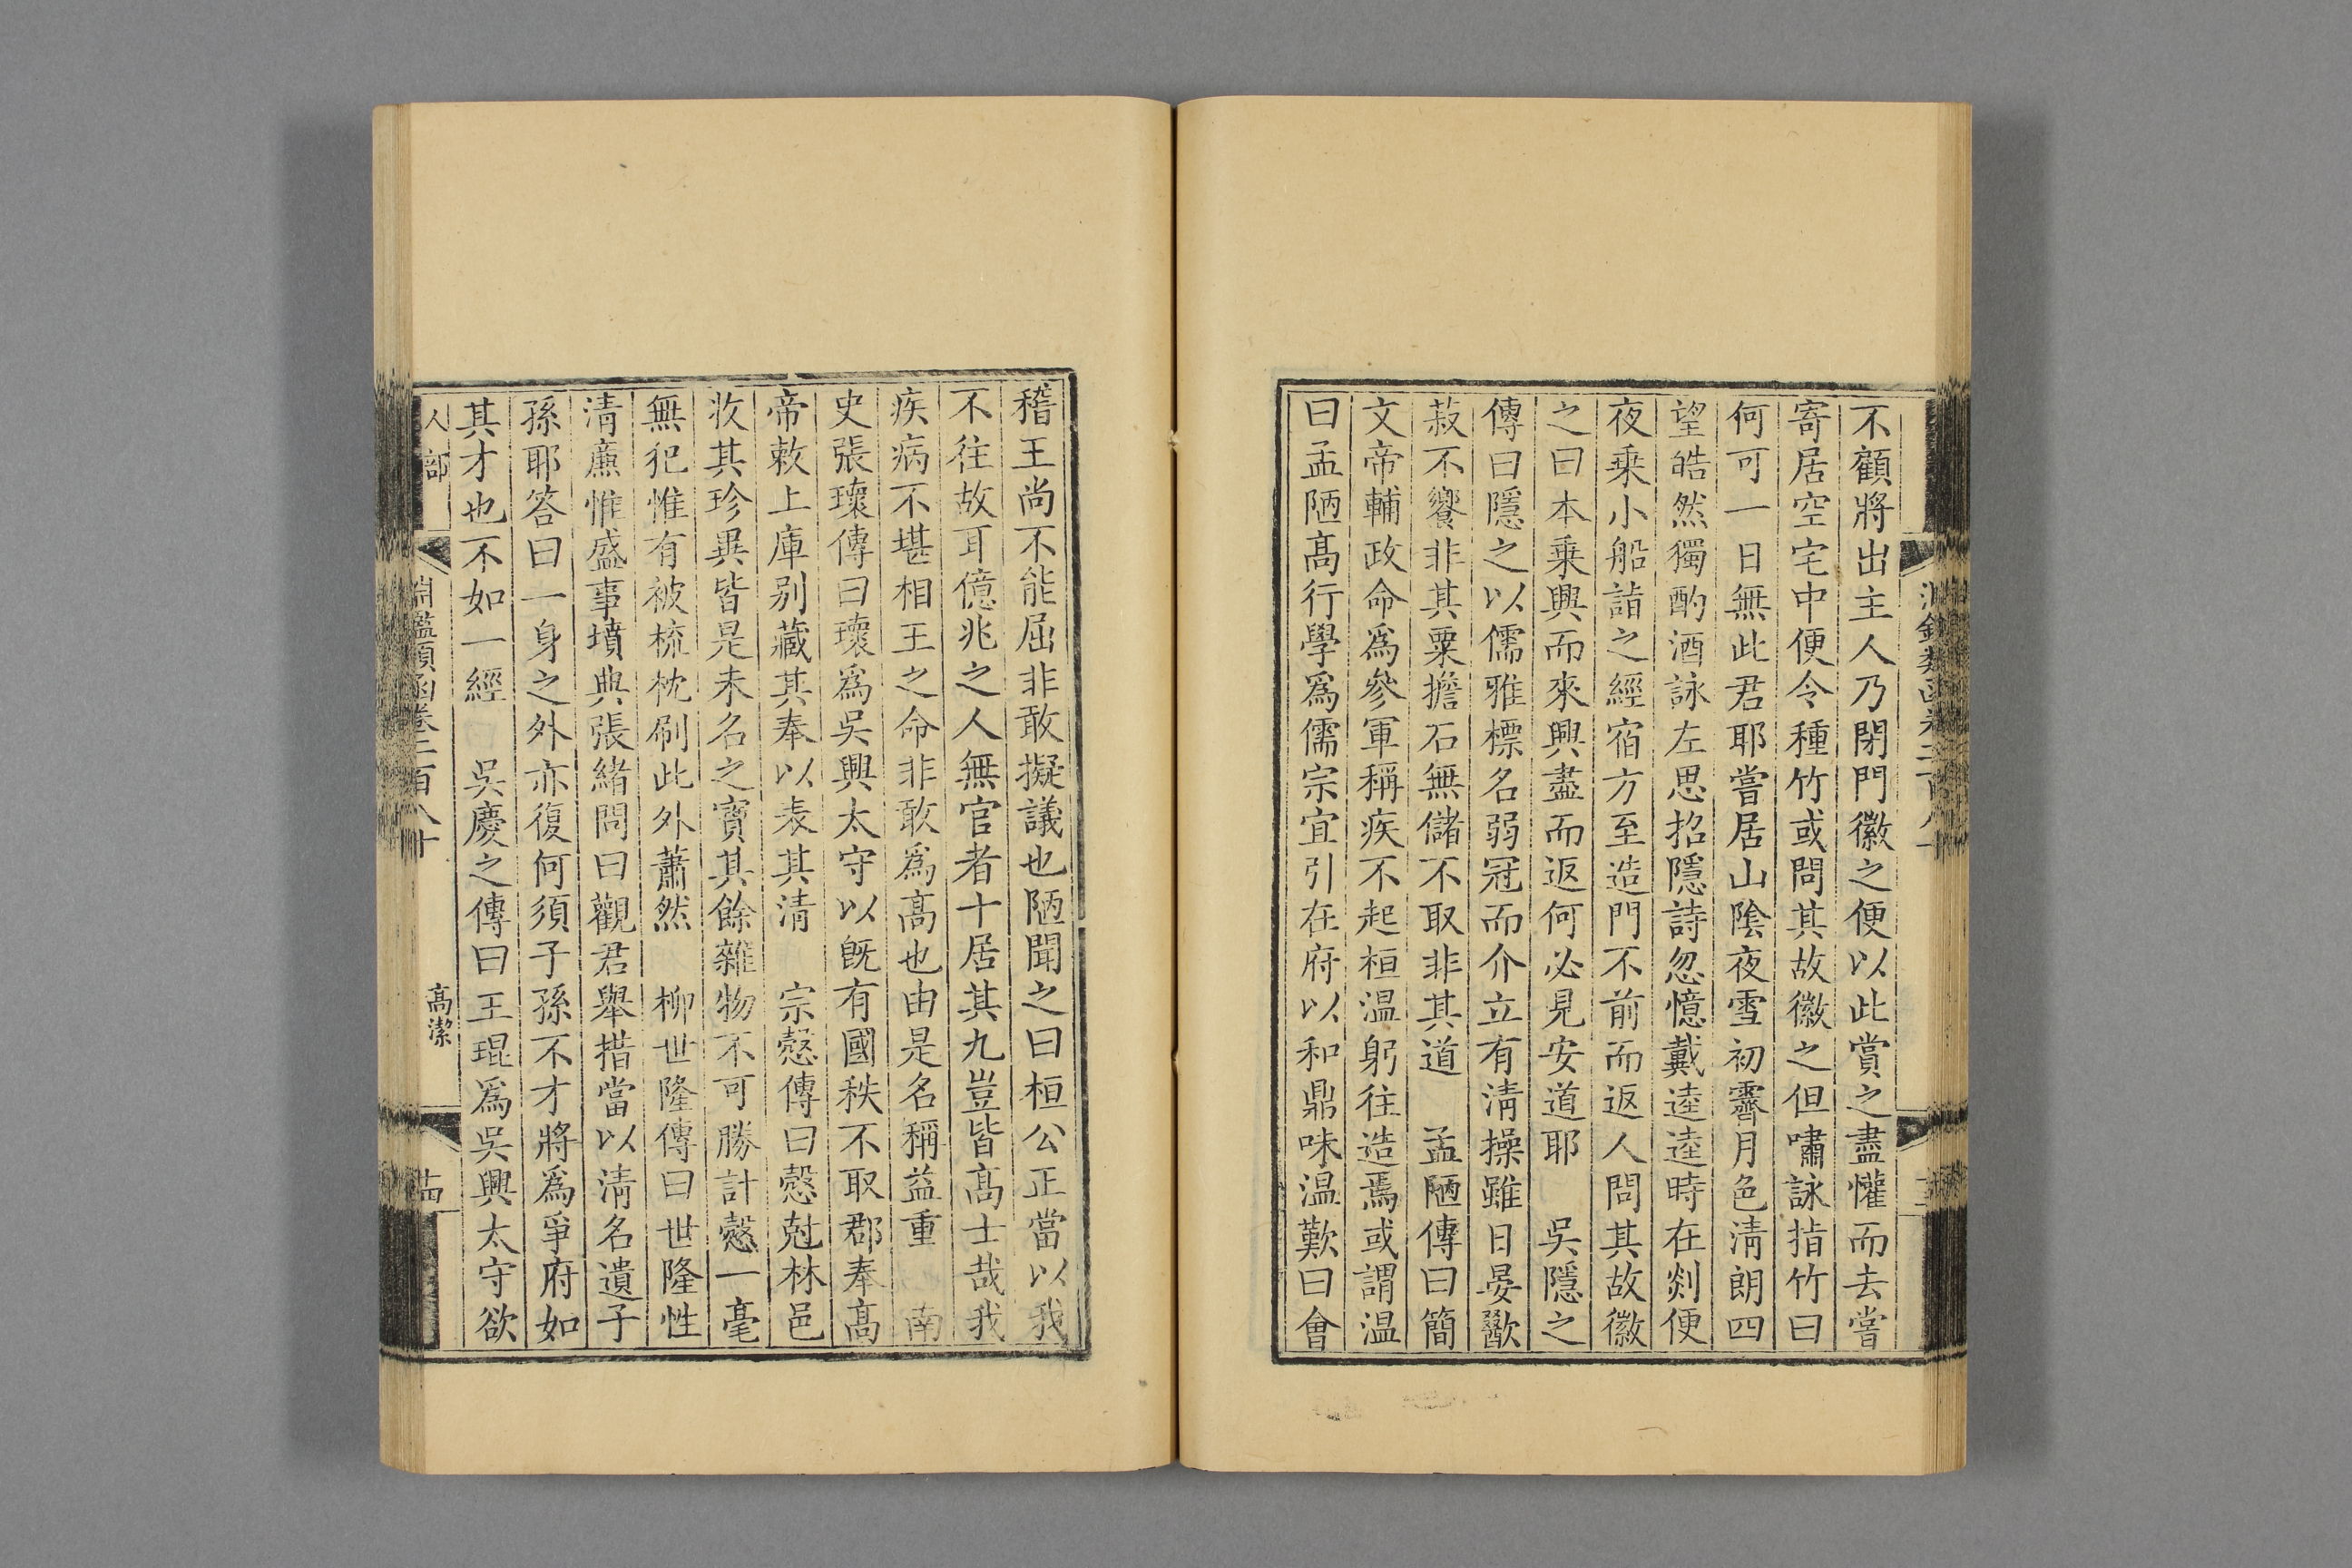 不顧將出主人乃閉門徽之便以此賞之盡懽而去嘗
寄居空宅中便令種竹或問其故徽之但嘯詠指竹曰
何可一日無此君耶嘗居山陰夜雪初霽月色淸朗四
望皓然獨酌酒詠左思招隱詩忽憶戴逵逵時在剡便
夜乗小船詣之經宿方至造門不前而返人問其故徽
之曰本乗興而來興盡而返何必見安道耶　吳隱之
傳曰隱之以儒雅標名弱冠而介立有淸操雖日晏歠
菽不饗非其粟擔石無儲不取非其道　孟陋傳曰簡
文帝輔政命爲參軍稱疾不起桓温躬往造焉或謂温
曰孟陋髙行學爲儒宗宜引在府以和鼎味温歎曰會
稽王尚不能屈非敢擬議也陋聞之曰桓公正當以我
不往故耳億兆之人無官者十居其九豈皆髙士哉我
疾病不堪相王之命非敢爲髙也由是名稱益重　南
史張瓌傳曰瓌爲吳興太守以旣有國秩不取郡奉髙
帝敕上庫别藏其奉以表其淸　宗慤傳曰慤尅林邑
收其珍異皆是未名之寶其餘雜物不可勝計慤一毫
無犯惟有被梳枕刷此外蕭然　柳世隆傳曰世隆性
淸亷惟盛事墳典張緒問曰觀君舉措當以淸名遺子
孫耶答曰一身之外亦復何須子孫不才將爲爭府如
其才也不如一經　吳慶之傳曰王琨爲吳興太守欲
人部
淵鑑類函卷二百八十
髙潔